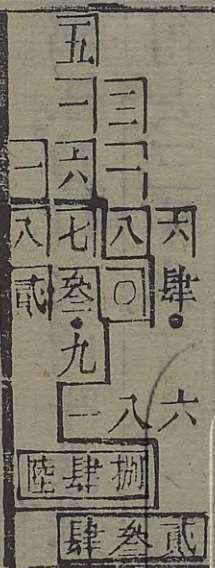 五
一三
一六一
八七八六
貳叄〇肆
九
一八六
陸肆捌
肆叄貳